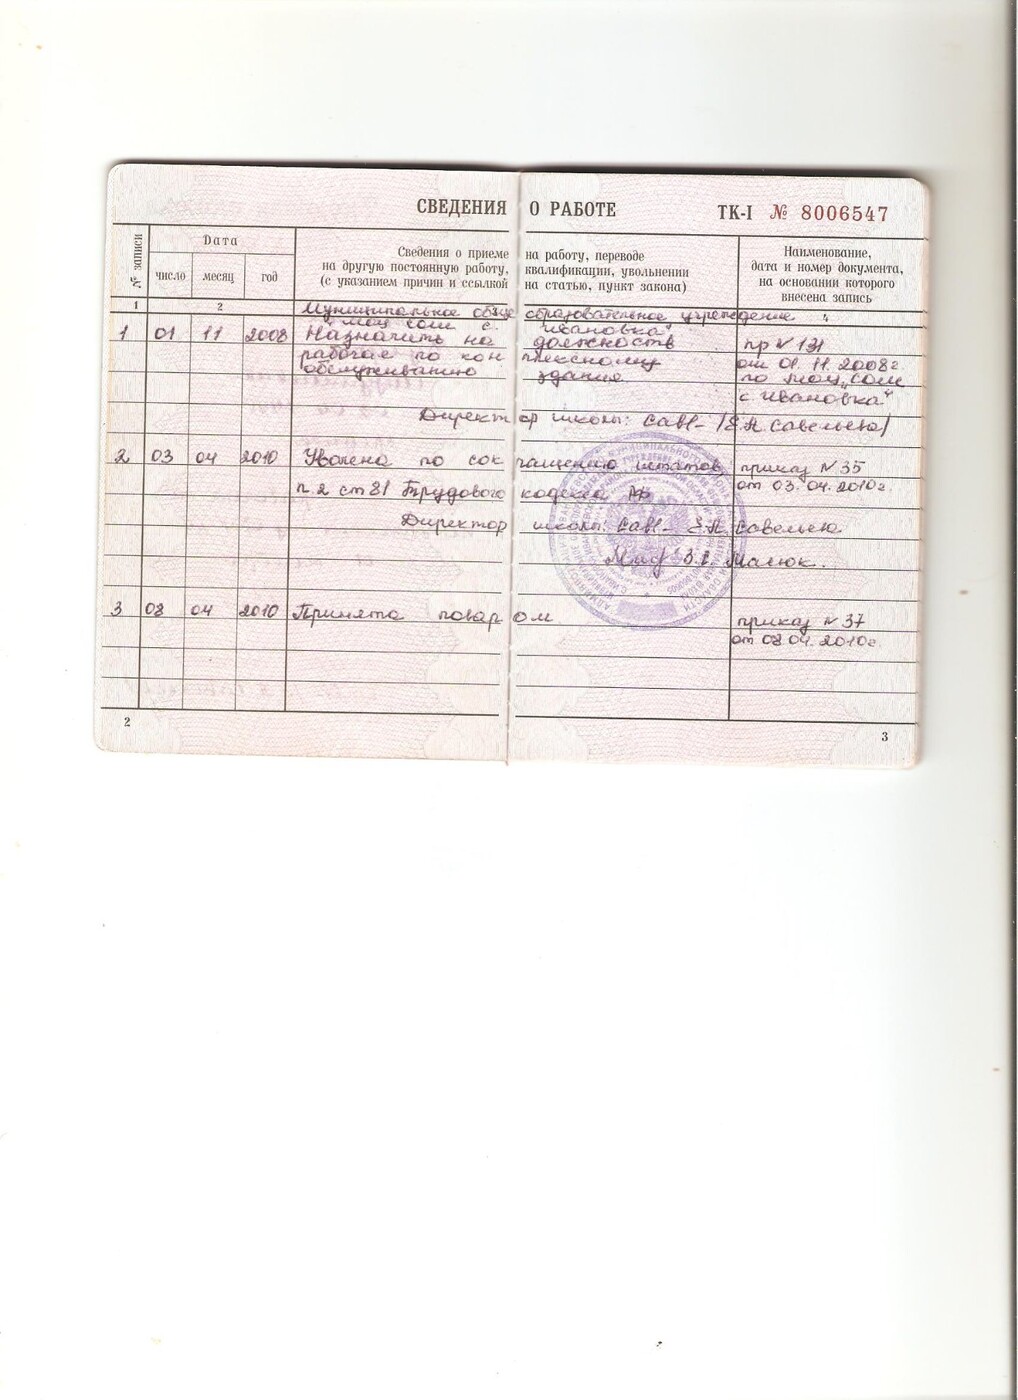 СВЕДЕНИЯ О РАБОТЕ
ТК-I № 8006547
№ записи
Дата
число месяц год
Сведения о приеме на работу, переводе
на другую постоянную работу, квалификации, увольнении
(с указанием причин и ссылкой на статью, пункт закона)
Наименование,
дата и номер документа,
на основании которого
внесена запись
1 2
Муниципальное общеобразовательное учреждение "
"моц сош с. "Ивановка"
1 01 11 2008 Назначить на должность пр № 131
рабочае по комплексному от 01.11.2008г
обслуживанию здания по моц "сош
с Ивановка"
Директор школы: Савл- /Е.А Савельева/
2 03 04 2010 Уволена по сокращению штатов, приказ № 35
п 2 ст 81 Трудового кодекса РФ от 03.04.2010г.
Директор школы: Савл- Е.А. Савельева
З.В. Малюк.
3 08 04 2010 Принята поваром приказ № 37
от 08 04.2010г
2
3